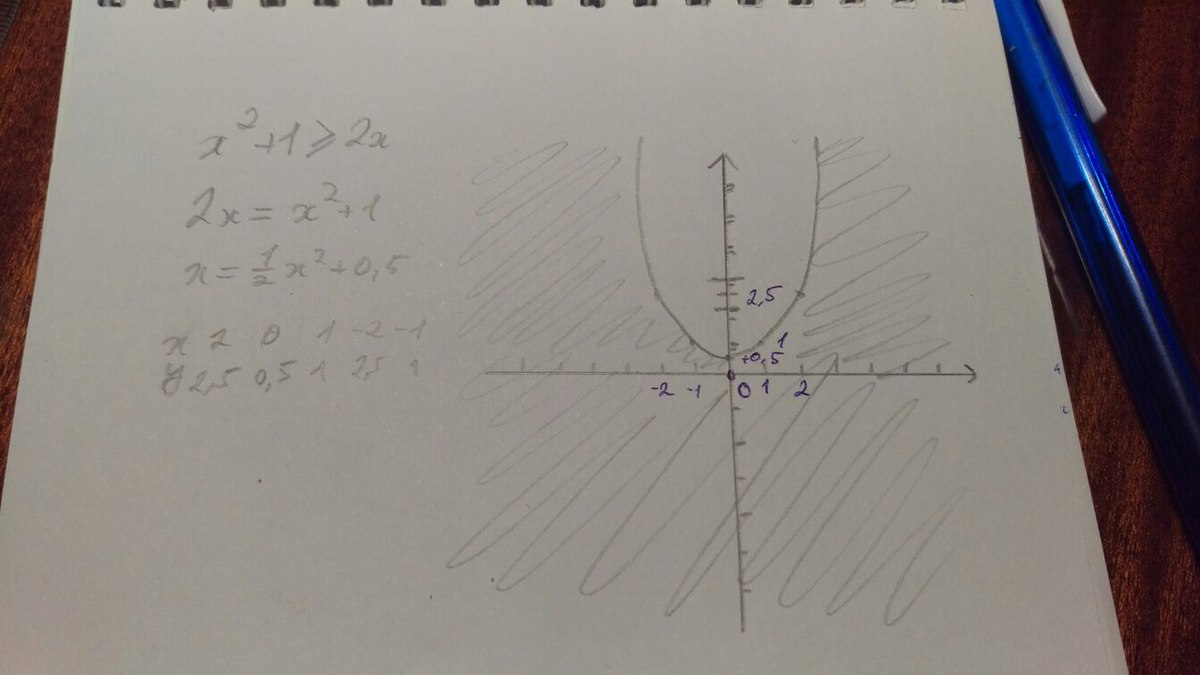 x²+1⩾2x
2x = x²+1
x = ½x²+0,5
x 2 0 1 -2 -1
y 2,5 0,5 1 2,5 1
2,5
1
0,5
-2 -1 0 1 2